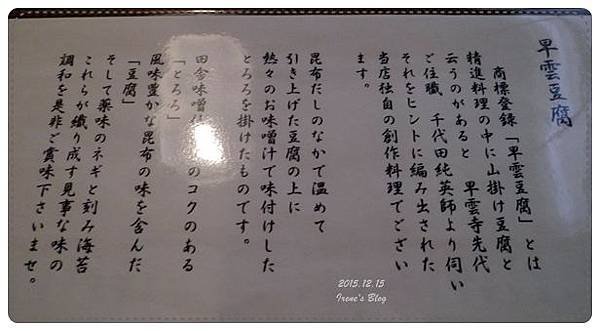 早雲豆腐
商標登録「早雲豆腐」とは
精進料理の中に山掛け豆腐と
云うのがあると　早雲寺先代
ご住職、千代田純英師より伺い
それをヒントに編み出された
当店独自の創作料理でござい
ます。
昆布だしのなかで温めて
引き上げた豆腐の上に
熱々のお味噌汁で味付けした
とろろを掛けたものです。
田舎味噌 のコクのある
「とろろ」
風味豊かな昆布の味を含んだ
「豆腐」
そして薬味のネギと刻み海苔
これらが織り成す見事な味の
調和を是非ご賞味下さいませ。
2015.12.15
Irene's Blog